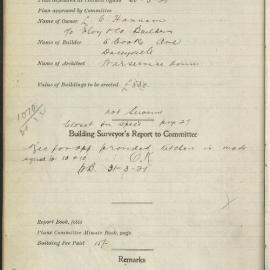 Plan approved by Committee
Name of Owner E Hannam
c/o Kloy & Co Builders
Name of Builder 5 Cook Ave
Daceyville
Name of Architect
Value of Buildings to be erected £550.
not Sewered
Closet on Spec page 27
Building Surveyor's Report to Committee
Rec for app provided kitchen is made
equal to 10 x 10 O.K
31-3-21
Report Book, folio
Plans Committee Minute Book, page
Building Fee Paid 15/-
Remarks